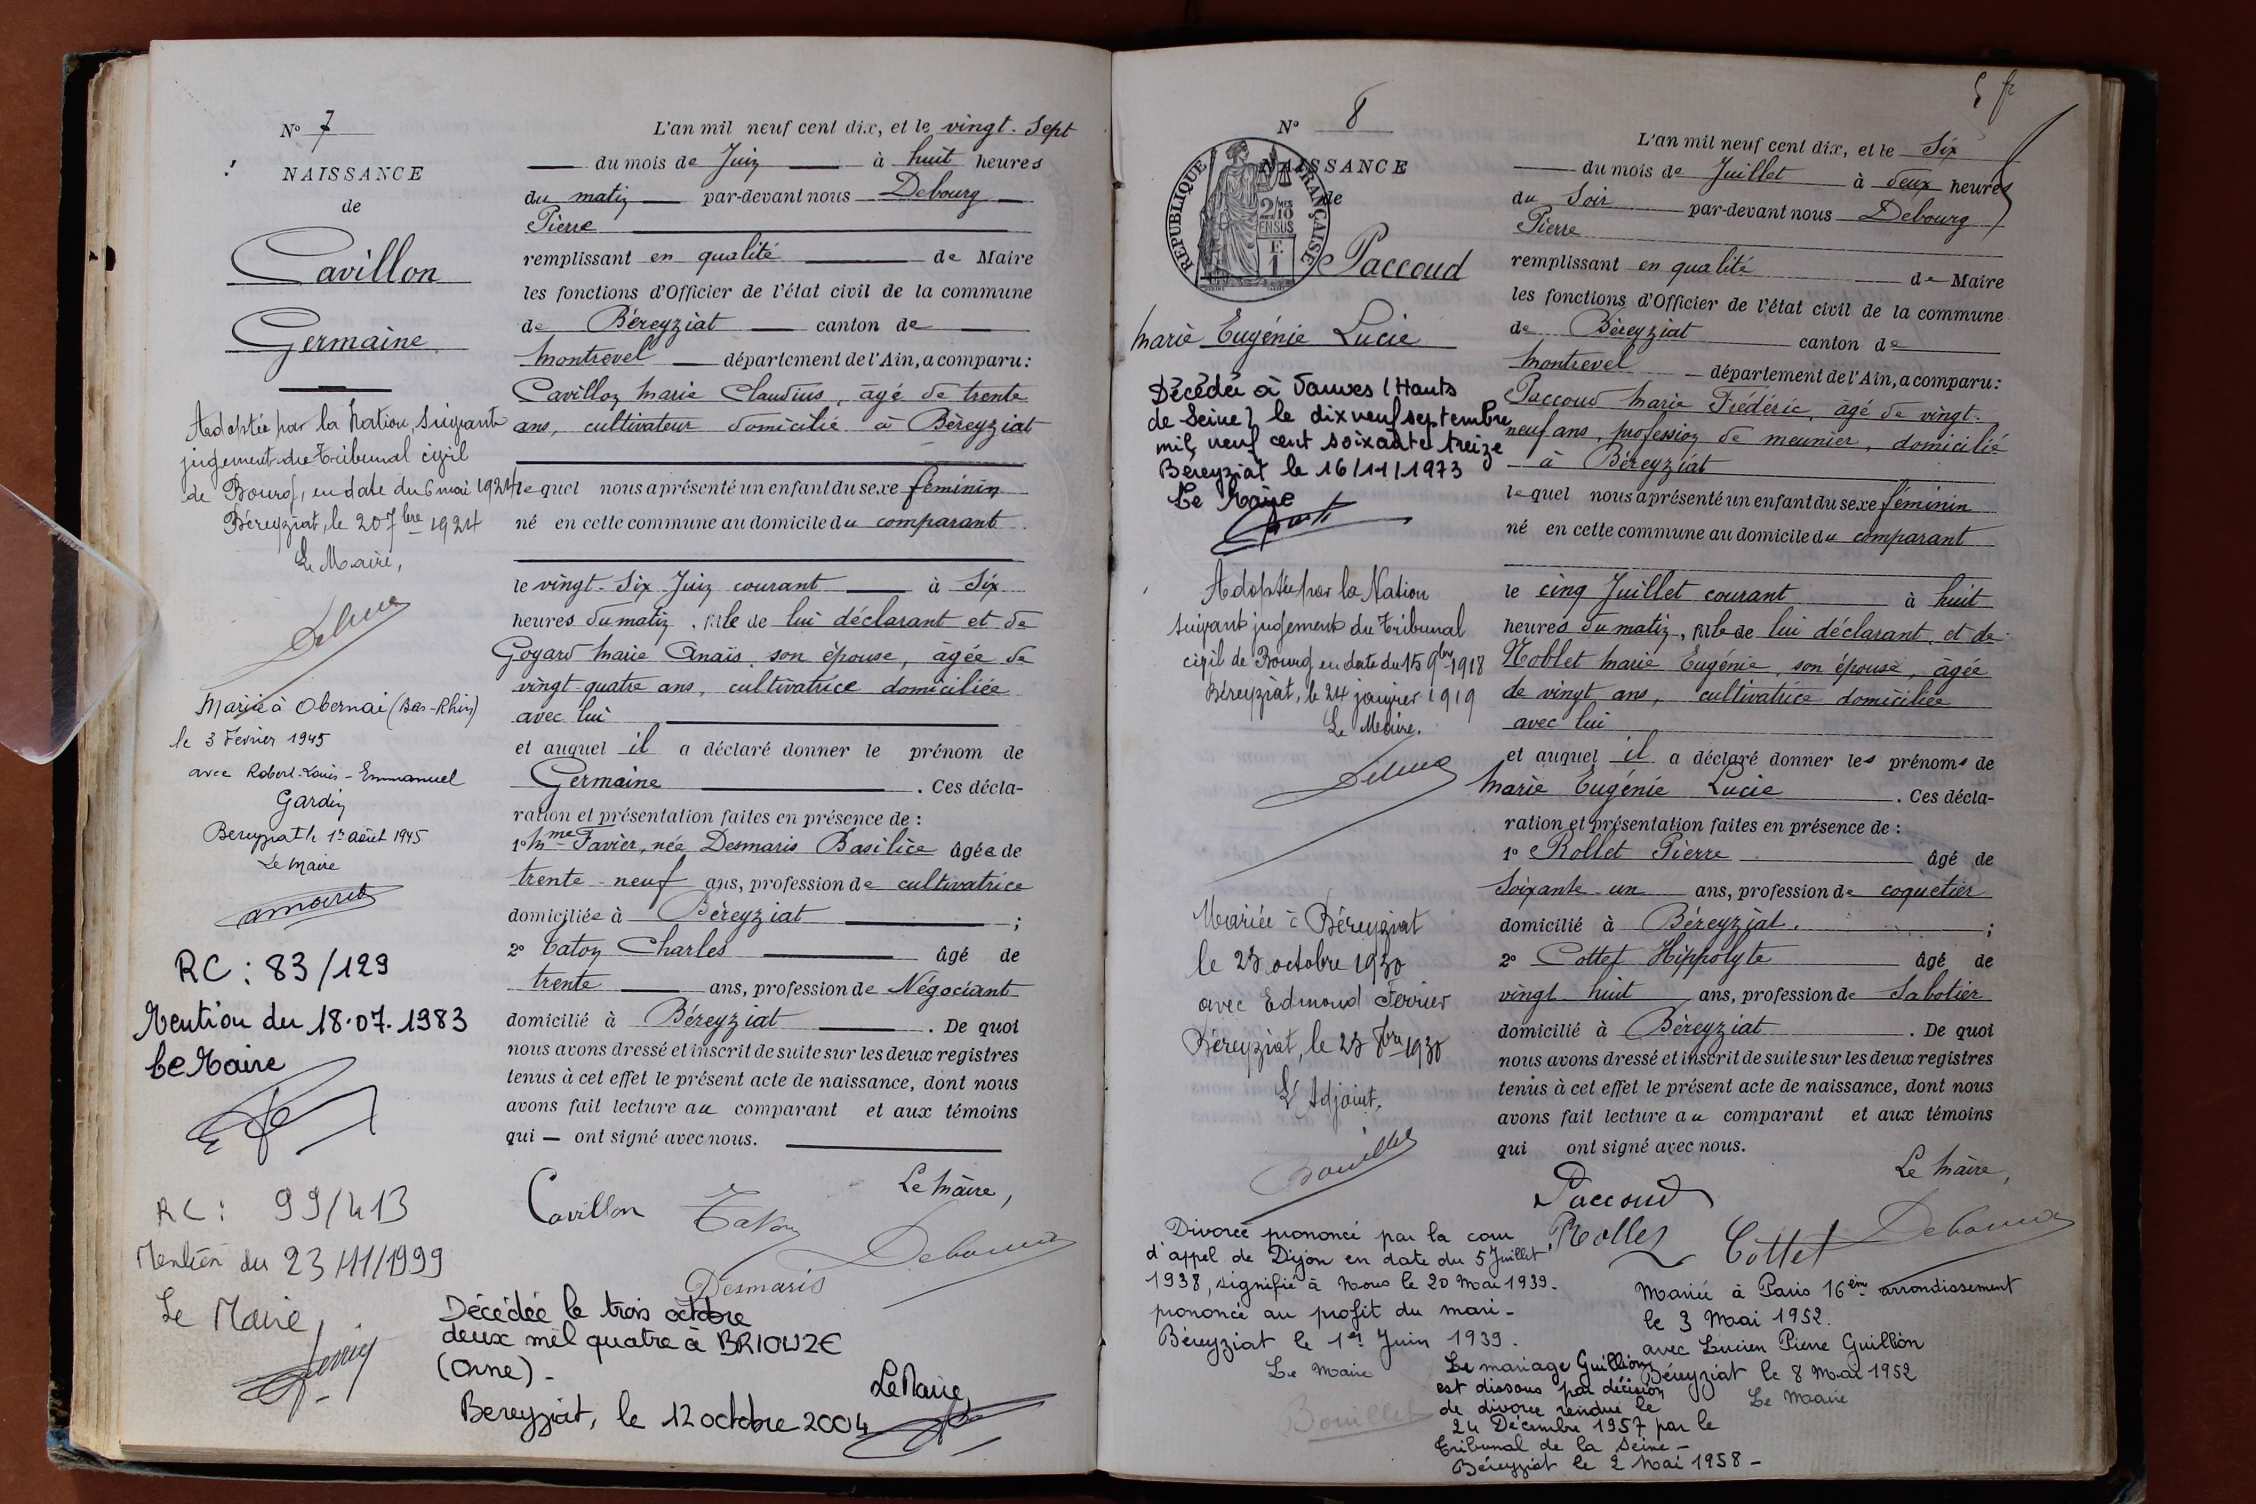 N° 7
NAISSANCE
de
Cavillon
Germaine
Adoptée par la Nation suivant
jugement du Tribunal civil
de Bourg, en date du 6 mai 1924
Béreyziat, le 20 7bre 1924
Le Maire,
Mariée à Obernai (Bas-Rhin)
le 3 Février 1945
avec Robert-Louis-Emmanuel
Gardin
Bereyziat le 1er Août 1945
Le Maire
RC : 83/129
Mention du 18.07.1983
Le Maire
RC : 99/413
Mention du 23/11/1999
Le Maire
L'an mil neuf cent dix, et le vingt-sept
du mois de Juin à huit heures
du matin par-devant nous Debourg
Pierre
remplissant en qualité de Maire
les fonctions d'Officier de l'état civil de la commune
de Béreyziat canton de
Montrevel département de l'Ain, a comparu :
Cavillon Marie Claudius, âgé de trente
ans, cultivateur domicilié à Béreyziat
lequel nous a présenté un enfant du sexe féminin
né en cette commune au domicile du comparant
le vingt-six Juin courant à six
heures du matin, fille de lui déclarant et de
Goyard Marie Anaïs, son épouse, âgée de
vingt quatre ans, cultivatrice domiciliée
avec lui
et auquel il a déclaré donner le prénom de
Germaine. Ces décla-
ration et présentation faites en présence de :
1° Mme Favier, née Desmaris Basilice âgée de
trente-neuf ans, profession de cultivatrice
domiciliée à Béreyziat ;
2° Taton Charles âgé de
trente ans, profession de Négociant
domicilié à Béreyziat. De quoi
nous avons dressé et inscrit de suite sur les deux registres
tenus à cet effet le présent acte de naissance, dont nous
avons fait lecture au comparant et aux témoins
qui — ont signé avec nous.
Le Maire,
Cavillon Taton
Debourg
Desmaris
Décédée le trois octobre
deux mil quatre à BRIOUZE
(Orne) -
Le Maire,
Bereyziat, le 12 octobre 2004
5 fr
N° 8
NAISSANCE
de
RÉPUBLIQUE FRANÇAISE
2/10 MES
EN SUS
F.
1
Paccoud
Marie Eugénie Lucie
Décédée à Vanves (Hauts
de Seine) le dix neuf septembre
mil neuf cent soixante treize
Béreyziat le 16/11/1973
Le Maire
Adoptée par la Nation
suivant jugement du Tribunal
civil de Bourg en date du 15 9bre 1918
Béreyziat, le 24 janvier 1919
Le Maire.
Mariée à Béreyziat
le 25 octobre 1930
avec Edmond Ferrier
Béreyziat, le 25 8bre 1930
L'Adjoint,
Bouillet
Divorce prononcé par la cour
d'appel de Dijon en date du 5 Juillet
1938, signifié à nous le 20 Mai 1939.
prononcé au profit du mari -
Béreyziat le 1er Juin 1939.
Le Maire
Bouillet
L'an mil neuf cent dix, et le six
du mois de Juillet à deux heures
du soir par-devant nous Debourg
Pierre
remplissant en qualité de Maire
les fonctions d'Officier de l'état civil de la commune
de Béreyziat canton de
Montrevel département de l'Ain, a comparu :
Paccoud Marie Frédéric, âgé de vingt-
neuf ans, profession de meunier, domicilié
à Béreyziat
lequel nous a présenté un enfant du sexe féminin
né en cette commune au domicile du comparant
le cinq Juillet courant à huit
heures du matin, fille de lui déclarant, et de
Noblet Marie Eugénie, son épouse, âgée
de vingt ans, cultivatrice domiciliée
avec lui
et auquel il a déclaré donner les prénoms de
Marie Eugénie Lucie. Ces décla-
ration et présentation faites en présence de :
1° Rollet Pierre âgé de
Soixante-un ans, profession de coquetier
domicilié à Béreyziat. ;
2° Cottet Hippolyte âgé de
vingt-huit ans, profession de Sabotier
domicilié à Béreyziat. De quoi
nous avons dressé et inscrit de suite sur les deux registres
tenus à cet effet le présent acte de naissance, dont nous
avons fait lecture au comparant et aux témoins
qui ont signé avec nous.
Le Maire,
Paccoud
Rollet Cottet Debourg
Mariée à Paris 16ème arrondissement
le 3 Mai 1952.
avec Lucien Pierre Guillion
Béreyziat le 8 Mai 1952
Le Maire
Le mariage Guillion
est dissous par décision
de divorce rendue le
24 Décembre 1957 par le
Tribunal de la Seine -
Béreyziat le 2 Mai 1958 -